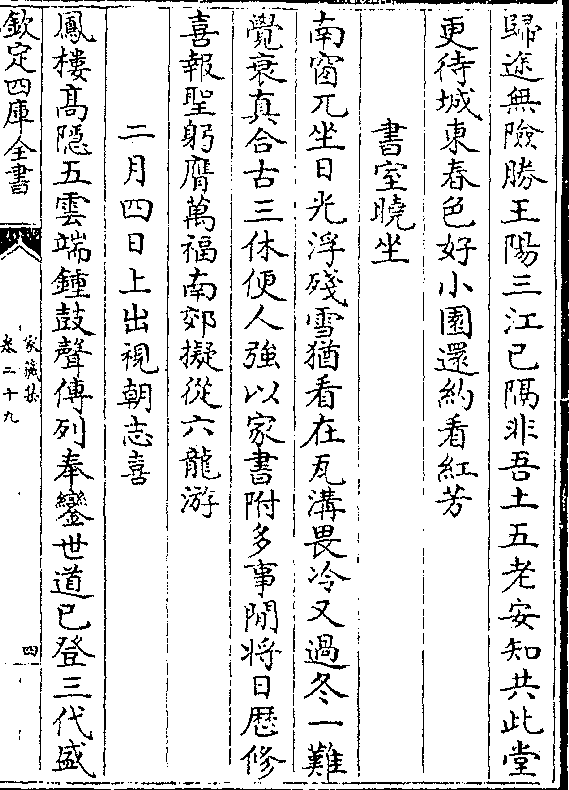 歸途無險勝王陽三江已隔非吾土五老安知共此堂
更待城東春色好小園還約看紅芳
書室曉坐
南窗兀坐日光浮殘雪猶看在瓦溝畏冷又過冬一難
覺衰真合古三休便人強以家書附多事閒將日歴修
喜報聖躬膺萬福南郊擬從六龍游
二月四日上出視朝志喜
鳳樓髙隠五雲端鍾鼓聲傳列奉鑾世道已登三代盛
欽定四庫全書
家藏集
卷二十九
四